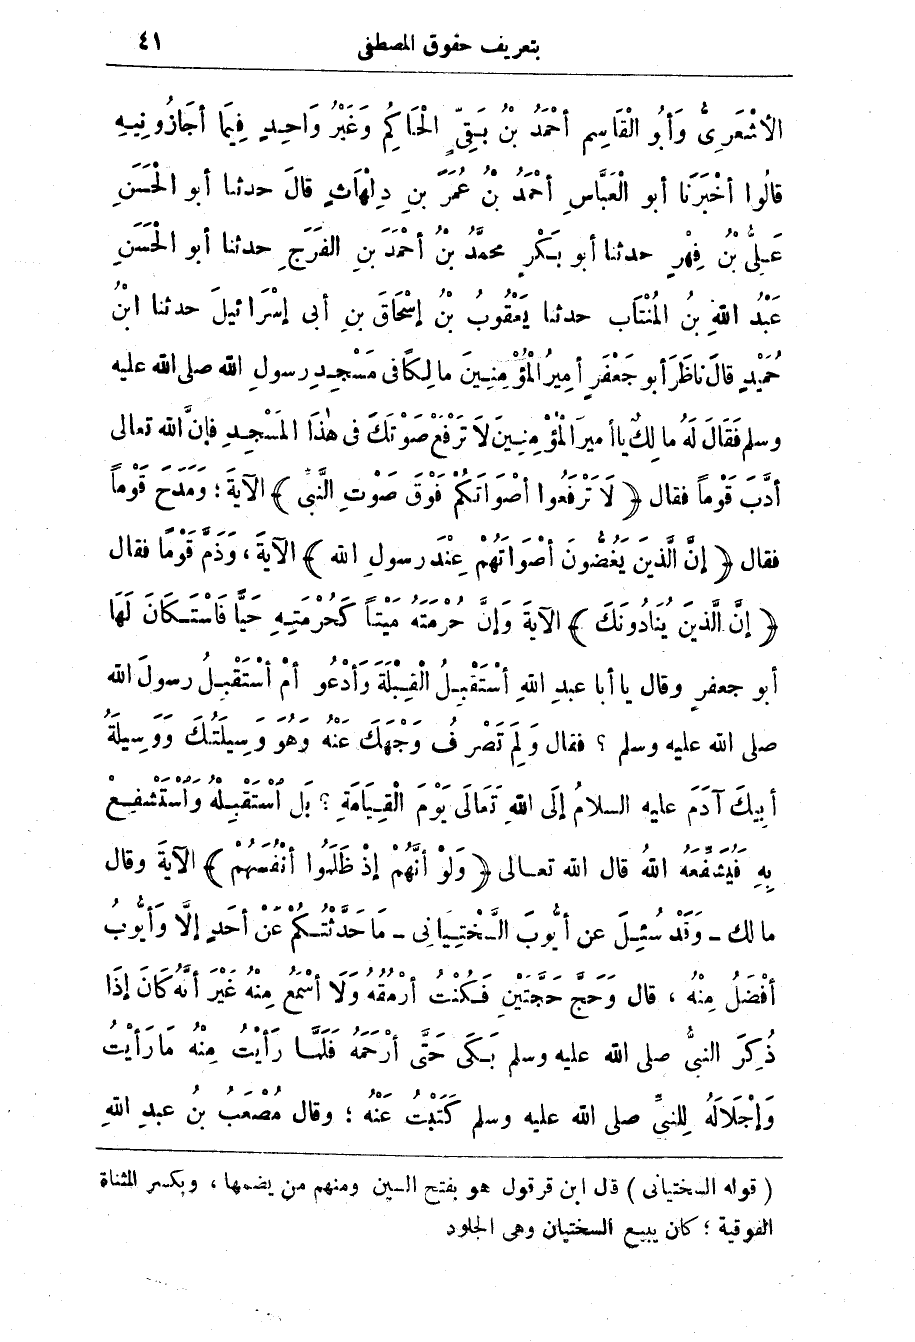 بتعريف حقوق المصطفى ٤١
الأشْعَرِىُّ وَأبُو القَاسِمِ أحْمَدُ بْنُ بَقِىٍّ الْحَاكِمُ وَغَيْرُ وَاحِدٍ فِيمَا أجَازُونِيهِ
قالُوا أخْبَرَنَا أبو الْعَبَّاسِ أحْمَدُ بْنُ عُمَرَ بنِ دِلْهَاثٍ قالَ حدثنا أبو الْحَسَنِ
عَلِىُّ بْنُ فِهْرٍ حدثنا أبو بَكْرٍ محمَّدُ بْنُ أحْمَدَ بنِ الفَرَجِ حدثنا أبو الْحَسَنِ
عَبْدُ اللهِ بنُ المُنْتَابِ حدثنا يَعْقُوبُ بْنُ إسْحَاقَ بنِ أبى إسْرَائيلَ حدثنا ابْنُ
حُمَيْدٍ قالَ ناظَرَ أبو جَعْفَرٍ أمِيرُ المُؤْمِنِينَ مالِكًا فى مَسْجِدِ رسولِ الله صلى الله عليه
وسلم فَقَالَ لَهُ مالِكٌ ياأمِيرَ الْمُؤْمِنِينَ لَا تَرْفَعْ صَوْتَكَ فى هٰذَا المَسْجِدِ فإنَّ الله تعالى
أدَّبَ قَوْماً فقال ﴿ لَا تَرْفَعُوا أصْوَاتَكُمْ فَوْقَ صَوْتِ النَّبىِّ ﴾ الآيةَ ؛ وَمَدَحَ قَوْماً
فقال ﴿ إنَّ الَّذِينَ يَغُضُّونَ أصْوَاتَهُمْ عِنْدَ رسولِ الله ﴾ الآيةَ ، وَذَمَّ قَوْمًا فقال
﴿ إنَّ الَّذِينَ يُنَادُونَكَ ﴾ الآيةَ وَإنَّ حُرْمَتَهُ مَيْتاً كَحُرْمَتِهِ حَيًّا فَاسْتَكَانَ لَهَا
أبو جعفرٍ وقال ياأبا عبدِ اللهِ أسْتَقْبِلُ الْقِبْلَةَ وَأدْعُو أمْ أسْتَقْبِلُ رسولَ الله
صلى الله عليه وسلم ؟ فقال وَلِمَ تَصْرِفُ وَجْهَكَ عَنْهُ وَهُوَ وَسِيلَتُكَ وَوَسِيلَةُ
أبِيكَ آدَمَ عليه السلامُ إلَى اللهِ تَعَالَى يَوْمَ الْقِيَامَةِ ؟ بَلِ اسْتَقْبِلْهُ وَاسْتَشْفِعْ
بِهِ فَيُشَفِّعَهُ اللهُ قال الله تعالى ﴿ وَلَوْ أنَّهُمْ إذْ ظَلَمُوا أنْفُسَهُمْ ﴾ الآيةَ وقال
مالك ـ وَقَدْ سُئِلَ عن أيُّوبَ السَّخْتِيَانِى ـ مَا حَدَّثْتُكُمْ عَنْ أحَدٍ إلَّا وَأيُّوبُ
أفْضَلُ مِنْهُ ، قال وَحَجَّ حَجَّتَيْنِ فَكُنْتُ أرْمُقُهُ وَلَا أسْمَعُ مِنْهُ غَيْرَ أنَّهُ كَانَ إذَا
ذُكِرَ النبىُّ صلى الله عليه وسلم بَكَى حَتَّى أرْحَمَهُ فَلَمَّا رَأيْتُ مِنْهُ مَا رَأيْتُ
وَإجْلَالَهُ لِلنبىِّ صلى الله عليه وسلم كَتَبْتُ عَنْهُ ؛ وقال مُصْعَبُ بنُ عبدِ اللهِ
( قوله السختيانى ) قال ابن قرقول هو بفتح السين ومنهم من يضمها ، وبكسر المثناة
الفوقية ؛ كان يبيع السختيان وهى الجلود